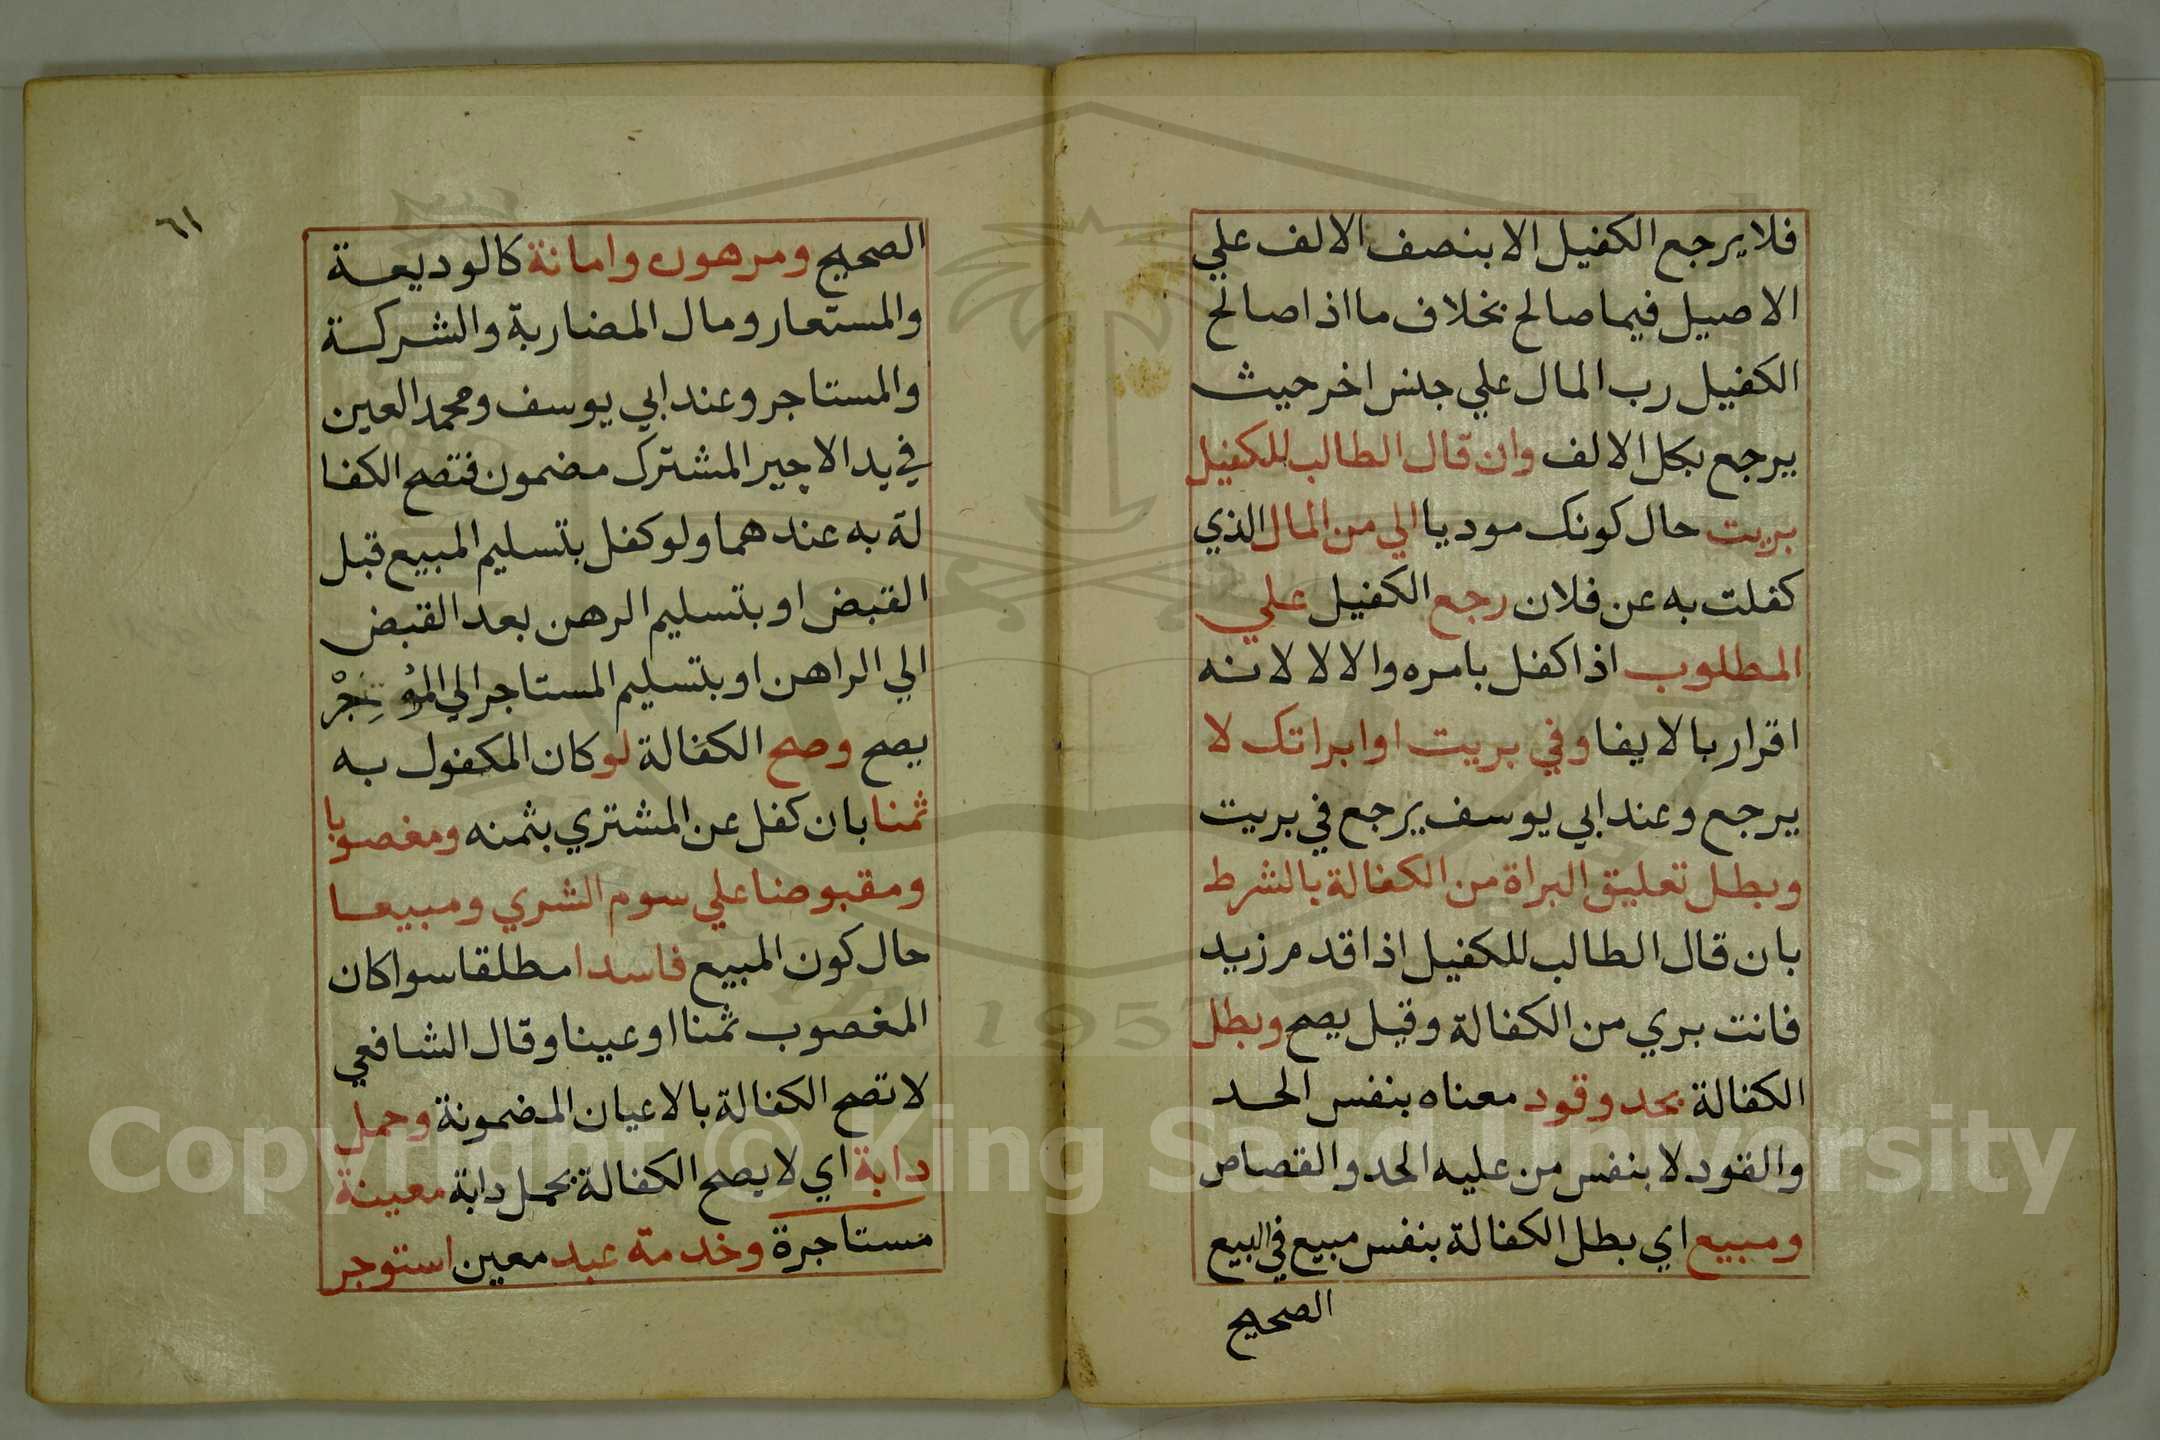 فلا يرجع الكفيل الا بنصف الالف علي
الاصيل فيما صالح بخلاف ما اذا صالح
الكفيل رب المال علي جنس اخر حيث
يرجع بكل الالف وان قال الطالب للكفيل
بريت حال كونك موديا الي من المال الذي
كفلت به عن فلان رجع الكفيل علي
المطلوب اذا كفل بامره والا لا لانه
اقرار بالايفا وفي بريت او ابراتك لا
يرجع وعند ابي يوسف يرجع في بريت
وبطل تعليق البراة من الكفالة بالشرط
بان قال الطالب للكفيل اذا قدم زيد
فانت بري من الكفالة وقيل يصح وبطل
الكفالة بحد وقود معناه بنفس الحد
والقود لا بنفس من عليه الحد والقصاص
ومبيع اي بطل الكفالة بنفس مبيع في البيع
الصحيح
٦١
الصحيح ومرهون وامانة كالوديعة
والمستعار ومال المضاربة والشركة
والمستاجر وعند ابي يوسف ومحمد العين
في يد الاجير المشترك مضمون فتصح الكفا
لة به عندهما ولو كفل بتسليم المبيع قبل
القبض او بتسليم الرهن بعد القبض
الي الراهن او بتسليم المستاجر الي المؤجِرْ
يصح وصح الكفالة لو كان المكفول به
ثمنا بان كفل عن المشتري بثمنه ومغصوبا
ومقبوضا علي سوم الشري ومبيعا
حال كون المبيع فاسدا مطلقا سوا كان
المغصوب ثمنا او عينا وقال الشافعي
لا تصح الكفالة بالاعيان المضمونة وحمل
دابة اي لا يصح الكفالة بحمل دابة معينة
مستاجرة وخدمة عبد معين استوجر
Copyright © King Saud University
1957